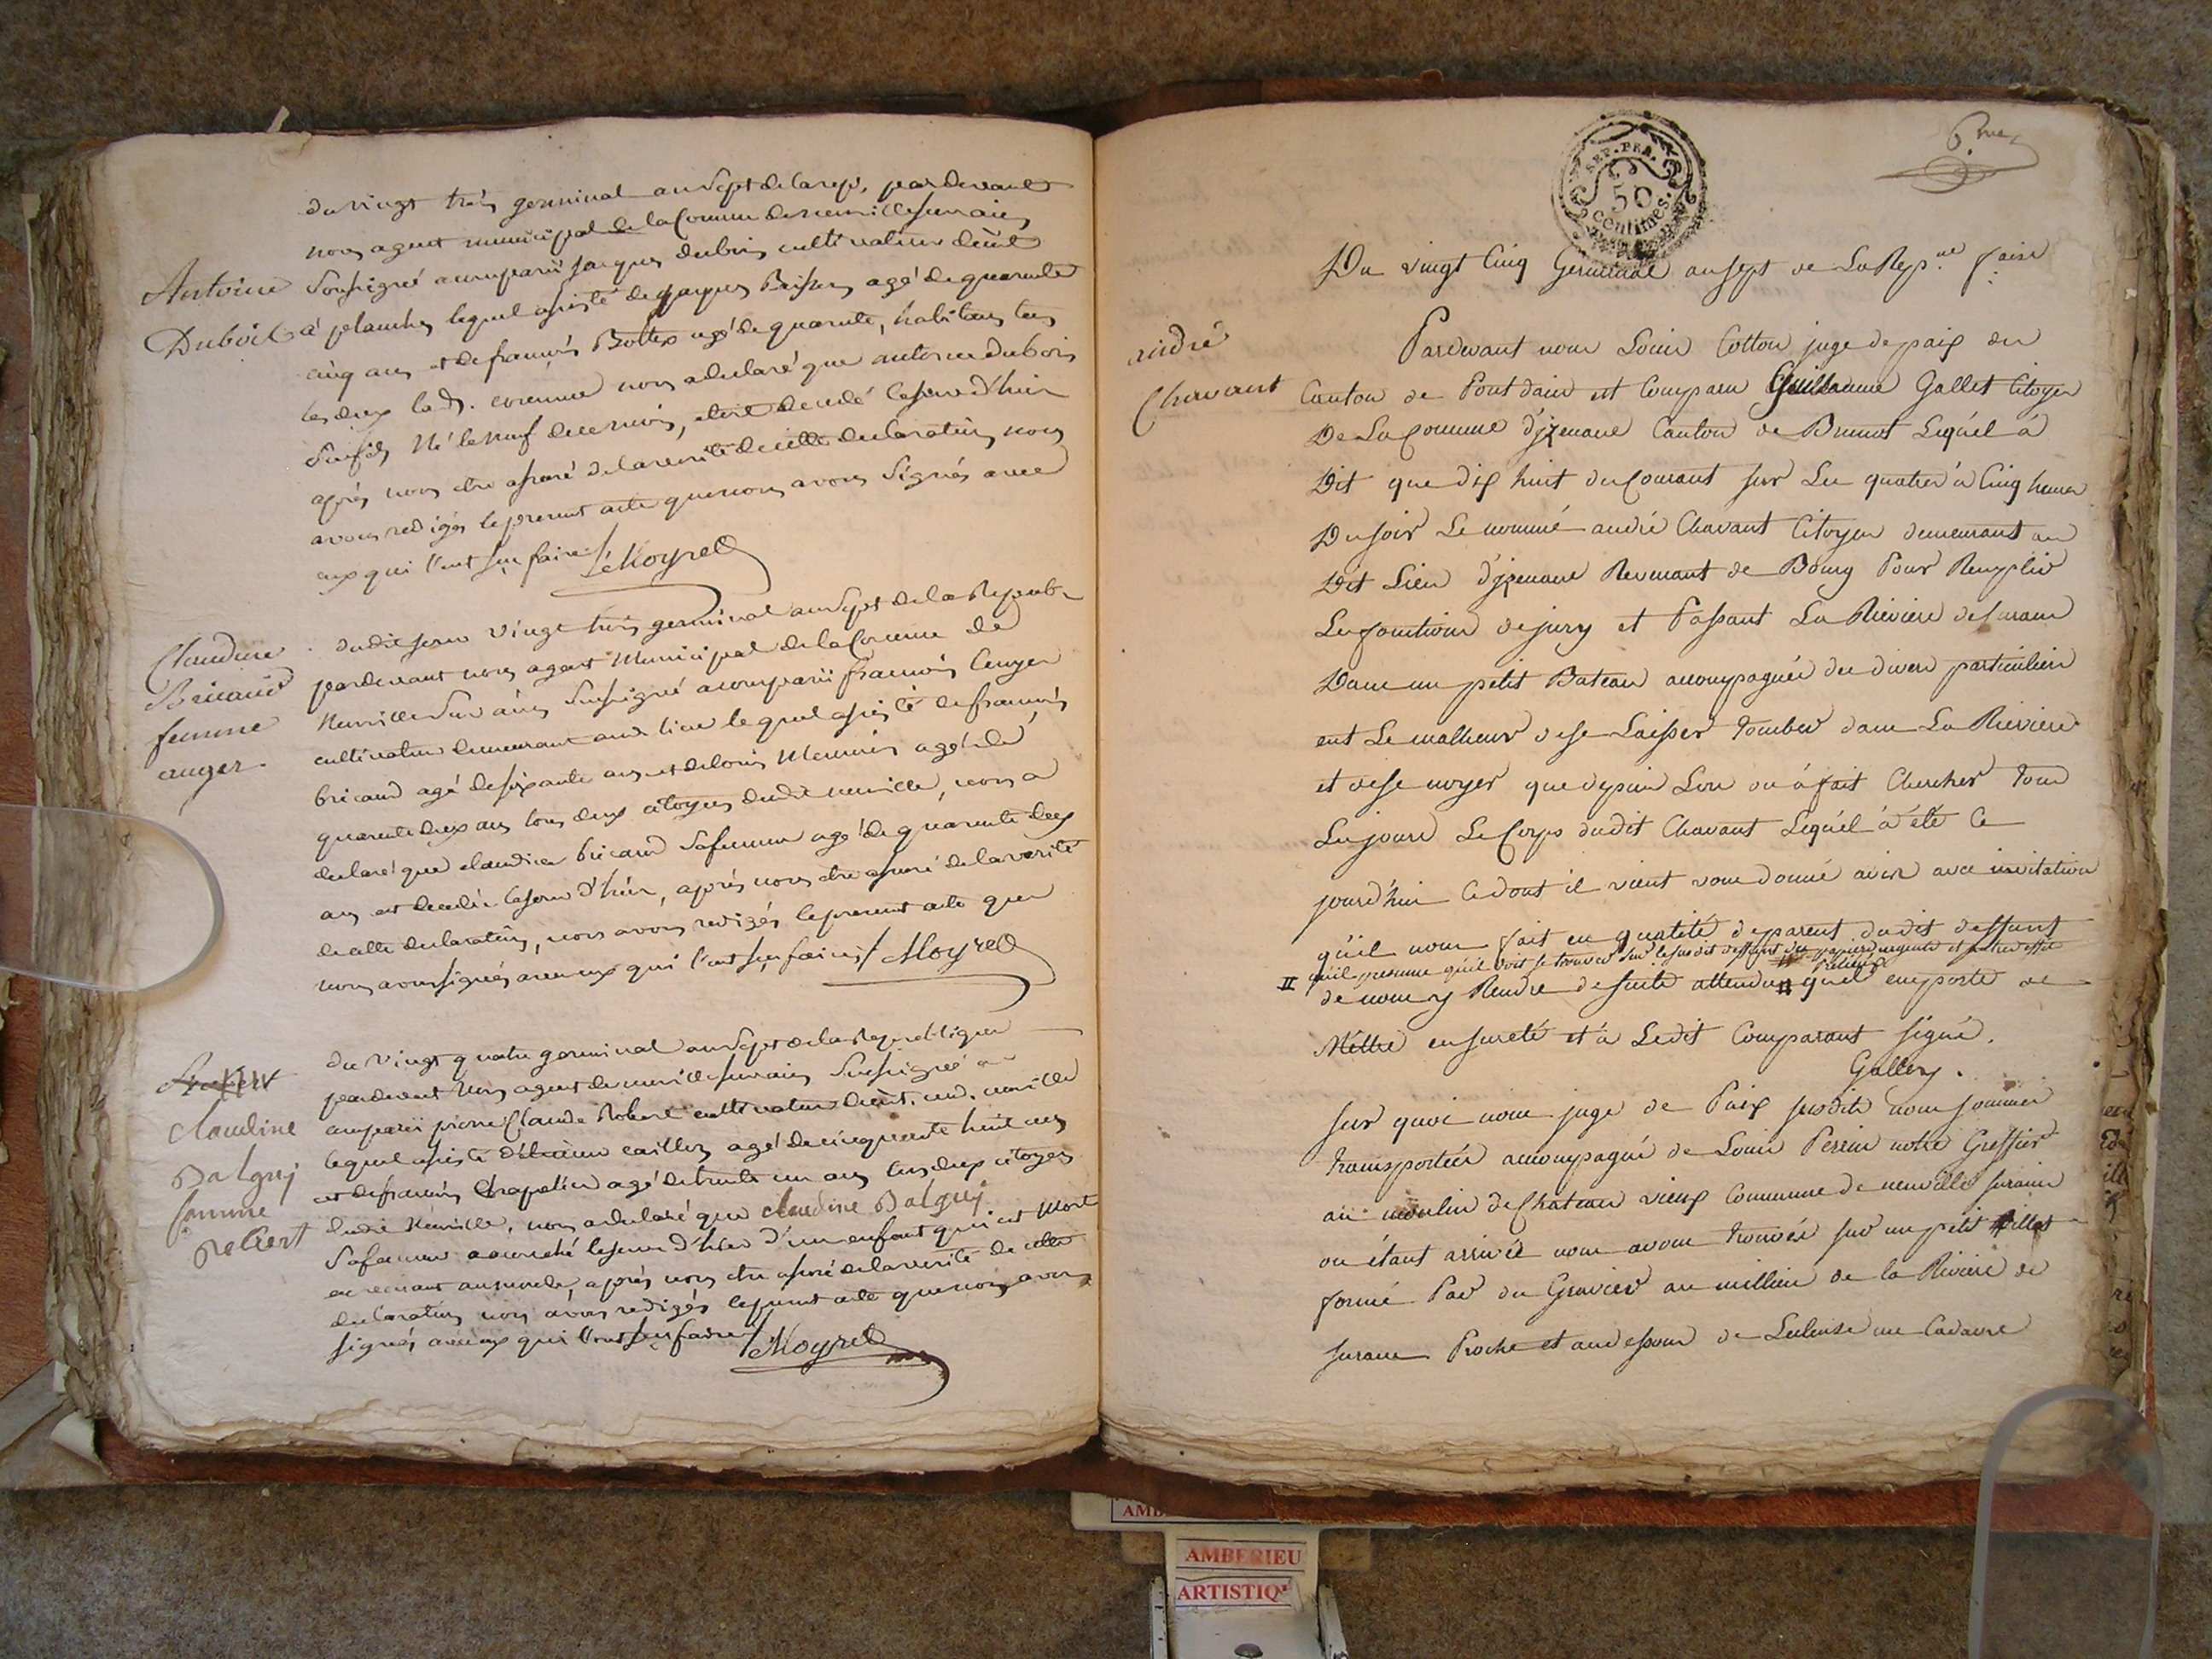 du vingt trois germinal an sept de la rep. pardevant
nous agent municipal de la Commune de neuville sur ain
Antoine
Duboil
Soussigné a comparü jacques dubois cultivateur de
à planches lequel assisté de jacques Brison agé de quarante
cinq ans et de françois Bottex agé de quarante, habitans tous
les deux lad. commune nous a declaré que antoine dubois
son fils Né le neuf de ce mois, est decedé le jour d'hier
après nous etre assuré de la verité de cette declaration nous
avons redigés le present acte que nous avons Signés avec
eux qui l'ont sçu faire / Moyret
Claudine
Bricaud
femme
auger.
dudit jour vingt trois germinal an Sept de la Repub.
pardevant nous agent Municipal de la Commune de
Neuville Sur ain Soussigné a comparü françois auger
cultivateur demeurant aud. lieu lequel assisté de françois
bricaud agé de soixante ans et de louis Meunier agé de
quarante deux ans tous deux citoyens dudit neuville, nous a
declaré que claudine bricaud Sa femme agé de quarante deux
ans est decedée le jour d'hier, après nous etre assuré de la verité
de cette declaration, nous avons redigés le present acte que
nous avons signés avec eux qui l'ont sçu faire / Moyret
claudine
Dalguy
femme
Robert
du vingt quatre germinal an Sept de la Republique
pardevant Nous agent de neuville sur ain Soussigné a
comparü pierre Claude Robert cultivateur aud. neuville
lequel assisté d'étienne caillon agé de cinquante huit ans
et de françois Chapelu agé de trente un ans tous deux citoyens
dudit Neuville, nous a declaré que claudine Dalguy
Sa femme accouché le jour d'hier d'un enfant qui est Mort
en venant au monde, après nous etre assuré de la verité de cette
declaration nous avons redigés le present acte que nous avons
signés avec eux qui l'ont sçu faire / Moyret
6.me
REP. FRA.
50
centimes.
Du vingt Cinq Germinal an sept de La Rep.ue f.aise
andré
Chavant
Pardevant nous Louis Cotton juge de paix du
Canton de Pont dain est Comparu Guillaume Gallet Citoyen
De La Commune d'jzenave Canton de Brenot Lequel à
Dit que dix huit du Courant sur Les quatre à Cinq heures
Du soir Le nommé andré Chavant Citoyen demeurant au
Dit Lieu d'jzenave Revenant de Bourg Pour Remplir
Les fonctions de jury et Passant La Riviere de suran
Dans un petit Bateau accompagné de divers particuliers
eut Le malheur de se Laisser tomber dans La Riviere
et de se noyer que depuis Lors on à fait Chercher tous
Les jours Le Corps dudit Chavant Lequel à été Ce
jourd'hui Ce dont il vient nous donné avis avec invitation
qu'il nous fait en qualité de parent dudit deffunt
II qu'il presume qu'il doit se trouver sur le susdit deffunt des papiers urgents et autres effets
de nous y Rendre de suite attendu II qu'il emporte de
Mettre en sureté et à Ledit Comparant signé.
Galley.
Sur quoi nous juge de Paix susdit nous sommes
transportés accompagné de Louis Perrin notre Greffier
au moulin de Chateau vieux Commune de neuville surain
ou étant arrivés nous avons trouvés sur un petit illot
formé Par du Gravier au millieu de la Riviere de
suran Proche et au dessous de Lecluse un Cadavre
AMB
AMBERIEU
ARTISTIQ